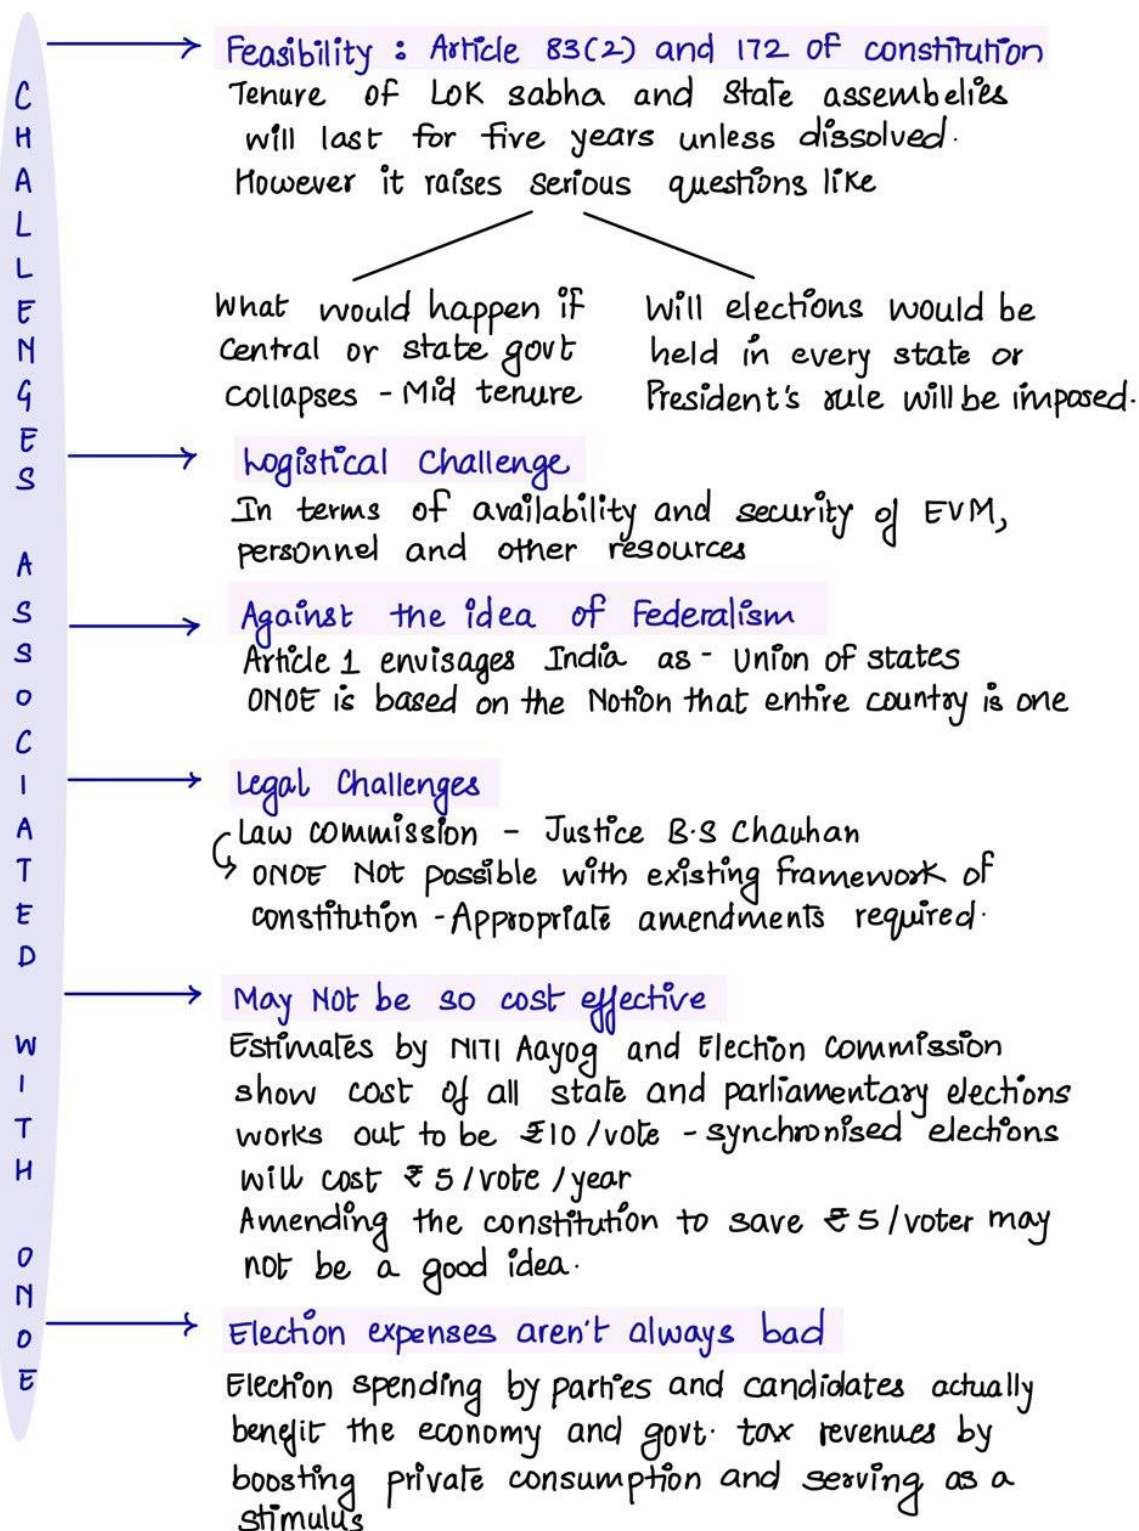 CHALLENGES ASSOCIATED WITH ONOE
Feasibility : Article 83(2) and 172 of constitution
Tenure of Lok sabha and State assembelies
will last for five years unless dissolved.
However it raises serious questions like
What would happen if
Central or state govt
collapses - Mid tenure
Will elections would be
held in every state or
President's rule will be imposed.
Logistical Challenge
In terms of availability and security of EVM,
personnel and other resources
Against the idea of Federalism
Article 1 envisages India as - Union of states
ONOE is based on the Notion that entire country is one
Legal Challenges
Law commission - Justice B.S Chauhan
ONOE Not possible with existing framework of
constitution - Appropriate amendments required.
May Not be so cost effective
Estimates by NITI Aayog and Election Commission
show cost of all state and parliamentary elections
works out to be ₹10/vote - synchronised elections
will cost ₹5/vote/year
Amending the constitution to save ₹5/voter may
not be a good idea.
Election expenses aren't always bad
Election spending by parties and candidates actually
benefit the economy and govt. tax revenues by
boosting private consumption and serving as a
stimulus